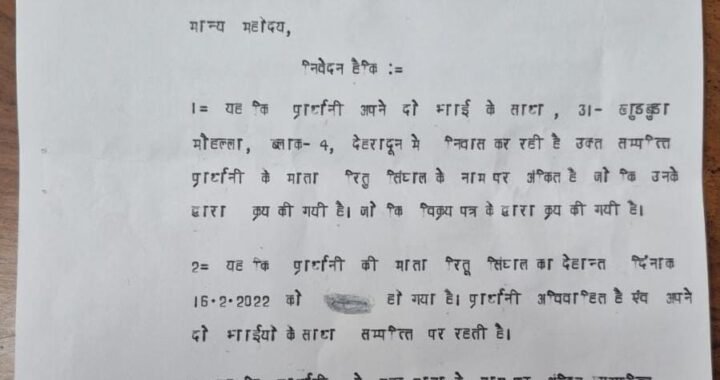 मान्य महोदय,
निवेदन हैकि :=
1= यह कि प्रार्थानी अपने दो भाई के साथ , 31- झुडबुडा
मोहल्ला, ब्लाक- 4, देहरादून मे निवास कर रही है उक्त सम्पत्ति
प्रार्थानी के माता रितु सिंघाल के नाम पर अंकित है जो कि उनके
द्वारा क्रय की गयी है। जो कि विक्रय पत्र के द्वारा क्रय की गयी है।
2= यह कि प्रार्थानी की माता रितू सिंघाल का देहान्त दिंनाक
16·2·2022 को हो गया है। प्रार्थानी अविवाहित है एंव अपने
दो भाईयो के साथ सम्पत्ति पर रहती है।